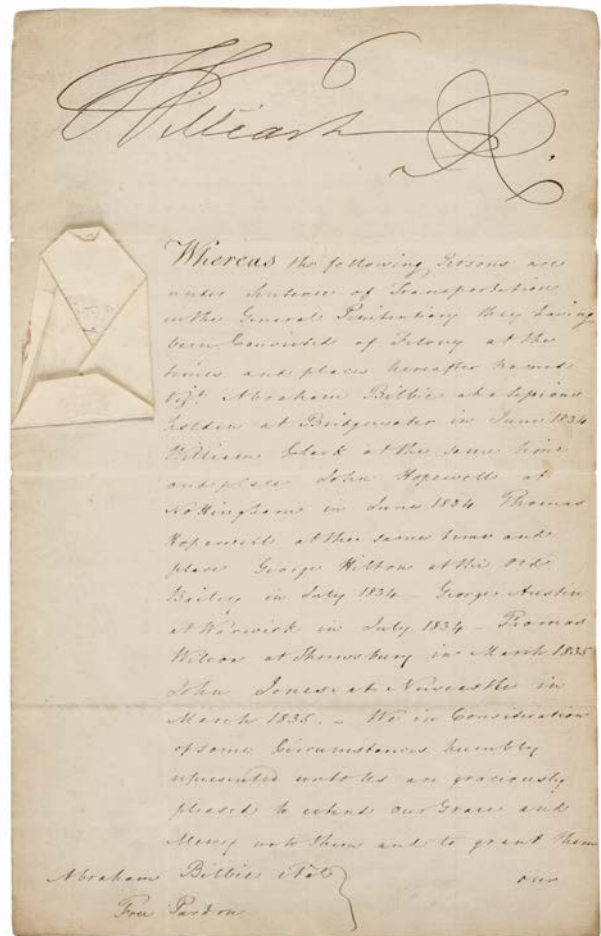 William R.
Whereas the following Persons are
under Sentence of Transportation
in the General Penitentiary they having
been Convicted of Felony at the
times and places hereafter named
Vizt. Abraham Billie at a Sessions
holden at Bridgewater in June 1834
William Clark at the same time
and place John Hopewell at
Nottingham in June 1834 Thomas
Hopewell at the same time and
place George Hilton at the Old
Bailey in July 1834 - George Austin
at Warwick in July 1834 - Thomas
Wilson at Shrewsbury in March 1835
John Jones at Newcastle in
March 1835. - We in Consideration
of some Circumstances humbly
represented unto Us are graciously
pleased to extend our Grace and
Mercy unto them and to grant them
our
Abraham Billie
Free Pardon